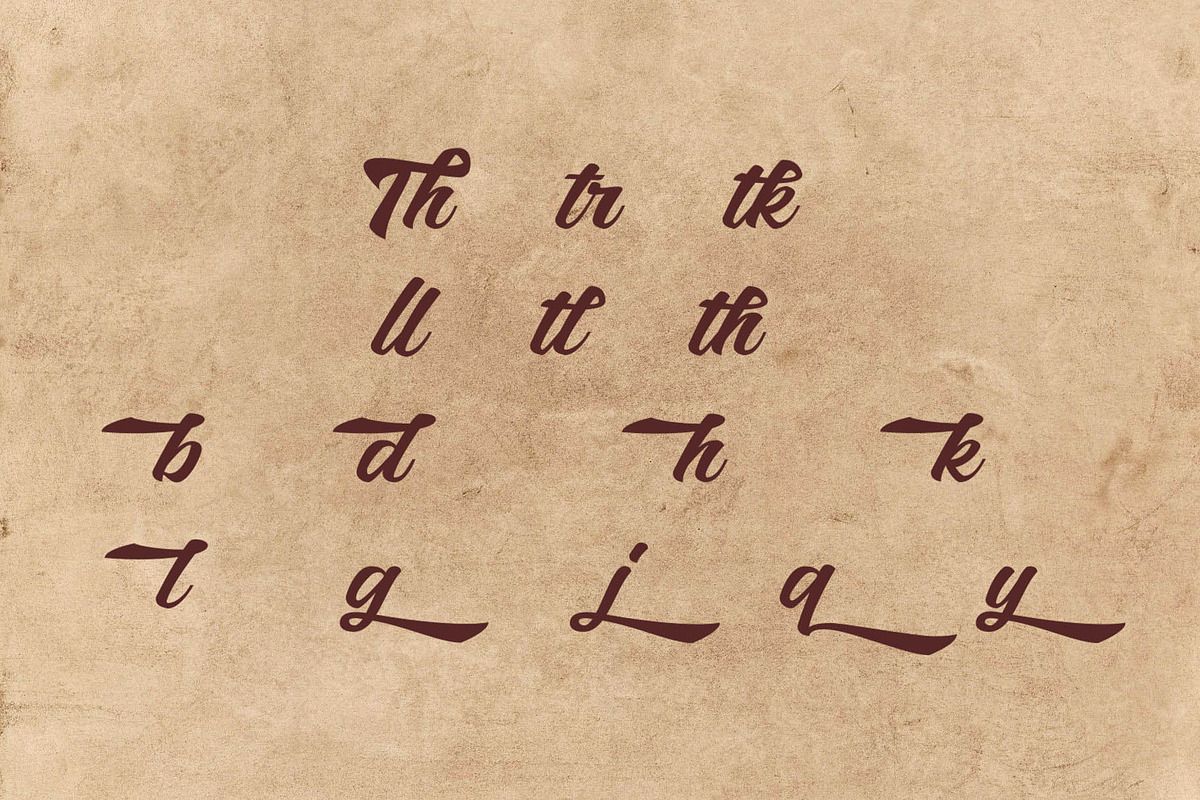 Th tr tk
ll tl th
b d h k
l g j q y